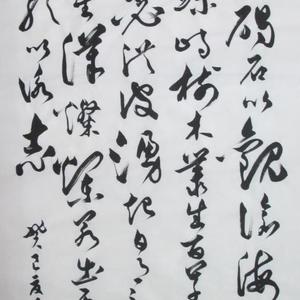 碣石以觀滄海
峙樹木叢生百草
瑟洪波湧起日月
漢燦爛若出其
以詠志
癸巳夏